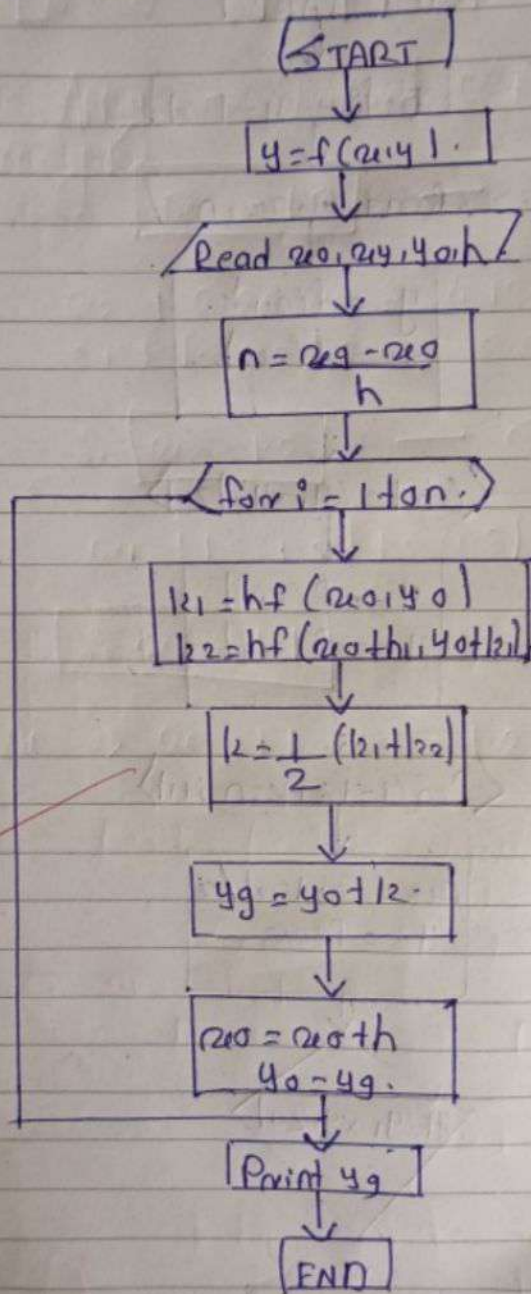 START
y = f(x,y).
Read x0, xg, y0, h
n = xg - x0
h
for i = 1 to n.
k1 = hf (x0, y0)
k2 = hf (x0+h, y0+k1)
k = 1/2 (k1+k2)
yg = y0+k.
x0 = x0+h
y0 - yg.
Print yg
END